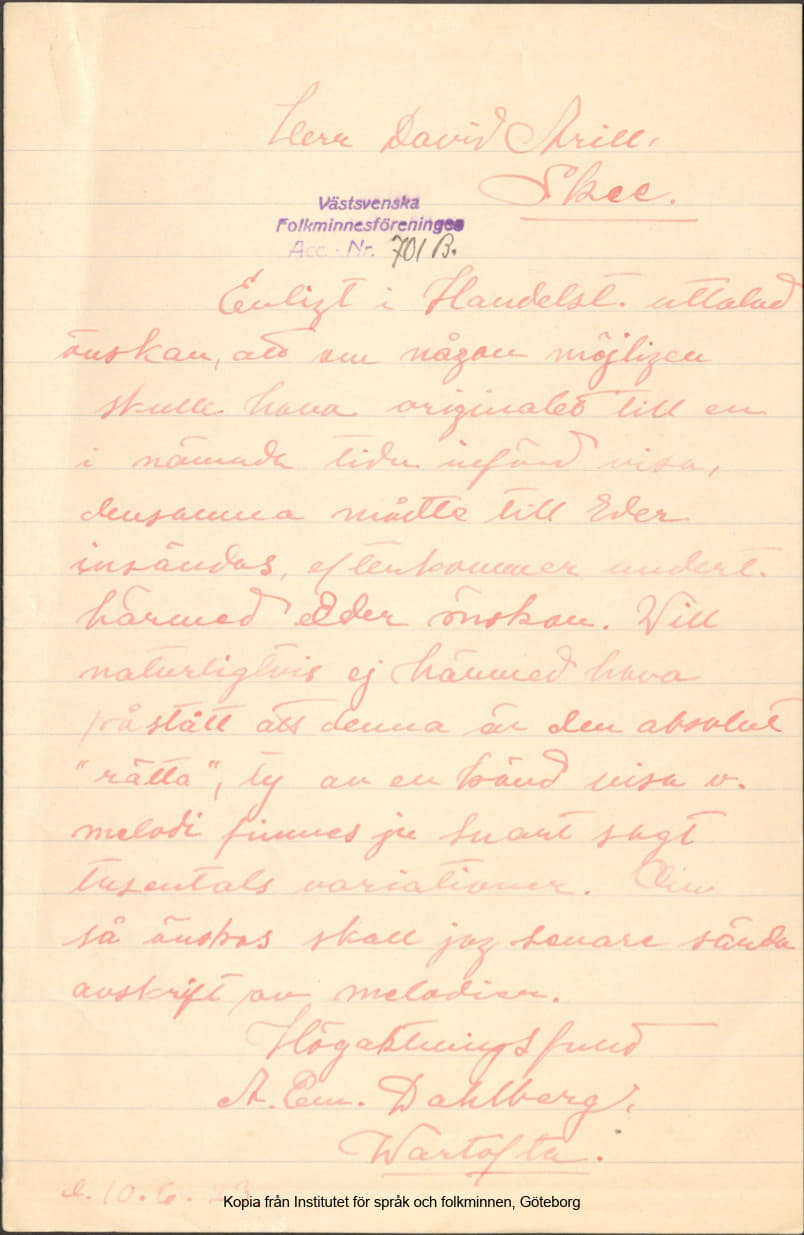 Herr David Arill,
Skee.
Västsvenska
Folkminnesföreningen
Acc.-Nr. 701 B.
Enligt i Handelst. uttalad
önskan, att om någon möjligen
skulle hava originalet till en
i nämnda tidn införd visa,
densamma måtte till Eder
insändas, efterkommer undert.
härmed Eder önskan. Vill
naturligtvis ej härmed hava
påstått att denna är den absolut
"rätta", ty av en känd visa o.
melodi finnes ju snart sagt
tusentals variationer. Om
så önskas skall jag senare sända
avskrift av melodien.
Högaktningsfull
A. Em. Dahlberg.
Wartofta.
d. 10.6.
Kopia från Institutet för språk och folkminnen, Göteborg